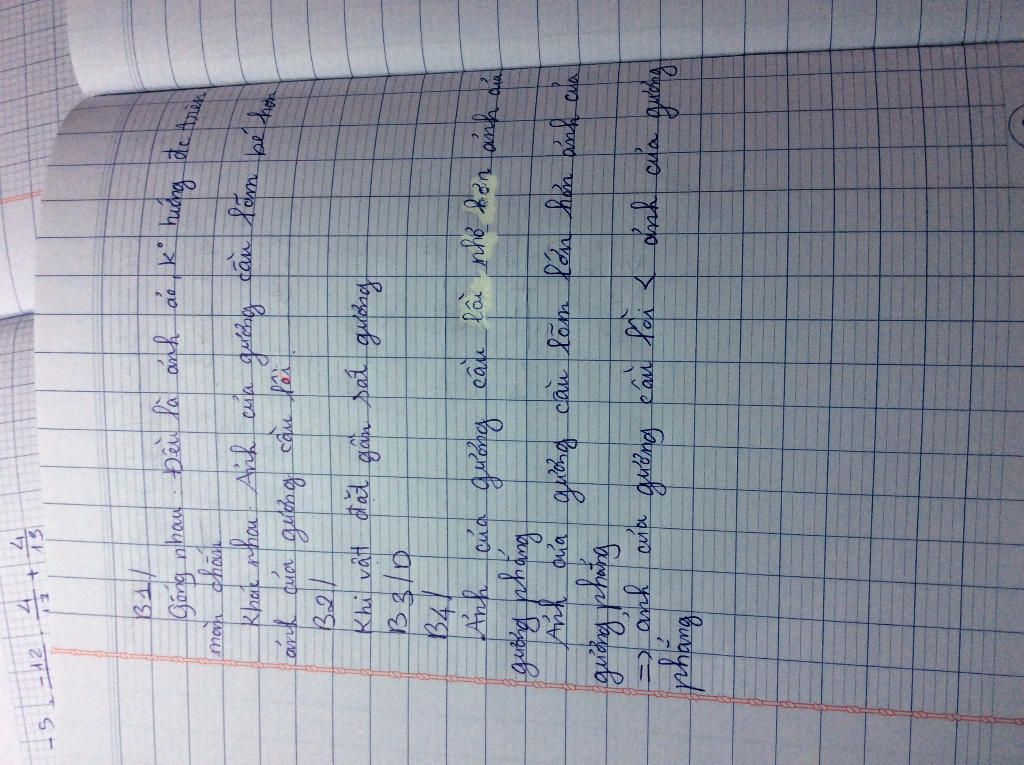 B1/
Gống nhau: Đều là ảnh ảo, k° hướng đc trên
màn chắn
Khác nhau: Ảnh của gương cầu lõm bé hơn
ảnh của gương cầu lồi.
B2/
Khi vật đặt gần sát gương
B3/D
B4/
Ảnh của gương cầu lồi nhỏ hơn ảnh của
gương phẳng
Ảnh của gương cầu lõm lớn hơn ảnh của
gương phẳng
=> ảnh của gương cầu lồi < ảnh của gương
phẳng